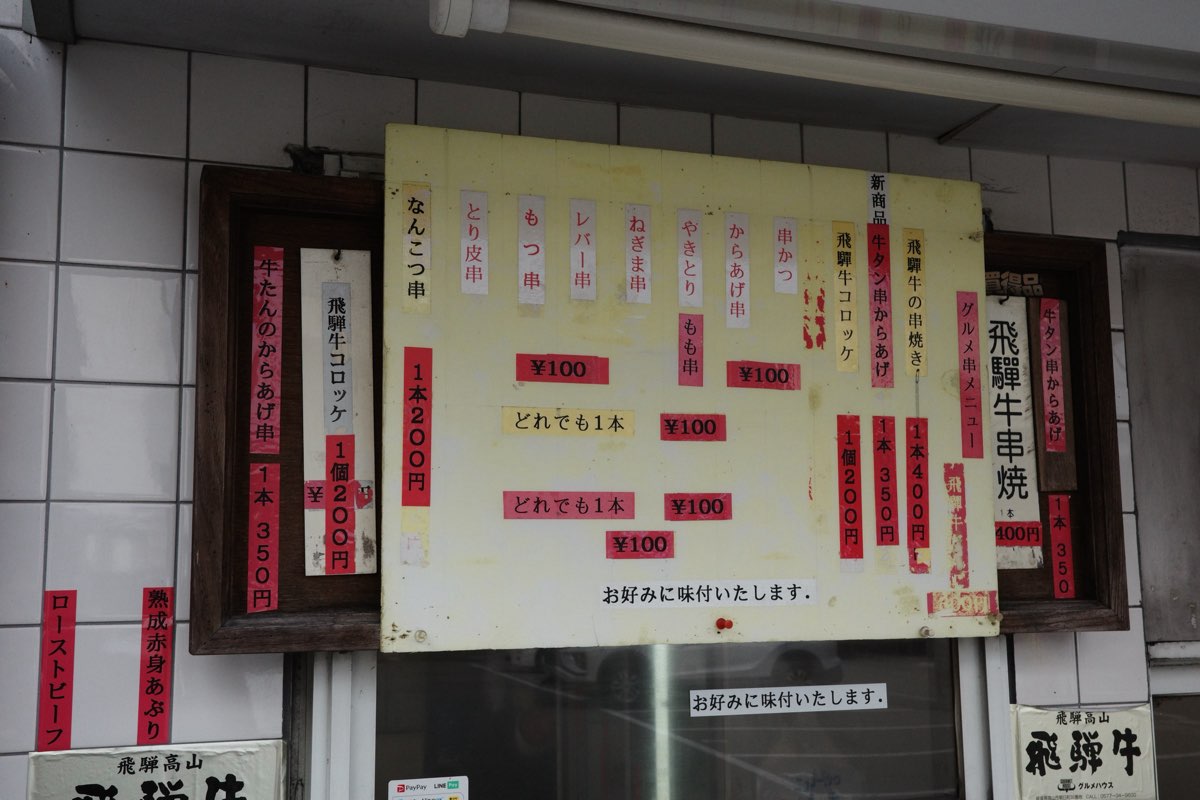 グルメ串メニュー
飛驒牛の串焼き
1本400円
新商品
牛タン串からあげ
1本350円
飛驒牛コロッケ
1個200円
串かつ
からあげ串
やきとり
もも串
ねぎま串
レバー串
もつ串
とり皮串
なんこつ串
1本200円
¥100
¥100
どれでも1本
¥100
どれでも1本
¥100
¥100
お好みに味付いたします.
お好みに味付いたします.
牛タン串からあげ
1本350
飛驒牛串焼
1本
400円
飛騨牛コロッケ
1個200円
牛たんのからあげ串
1本 350円
熟成赤身あぶり
ローストビーフ
飛騨高山
飛騨牛
飛騨高山
飛騨牛
グルメハウス
PayPay
LINE Pay